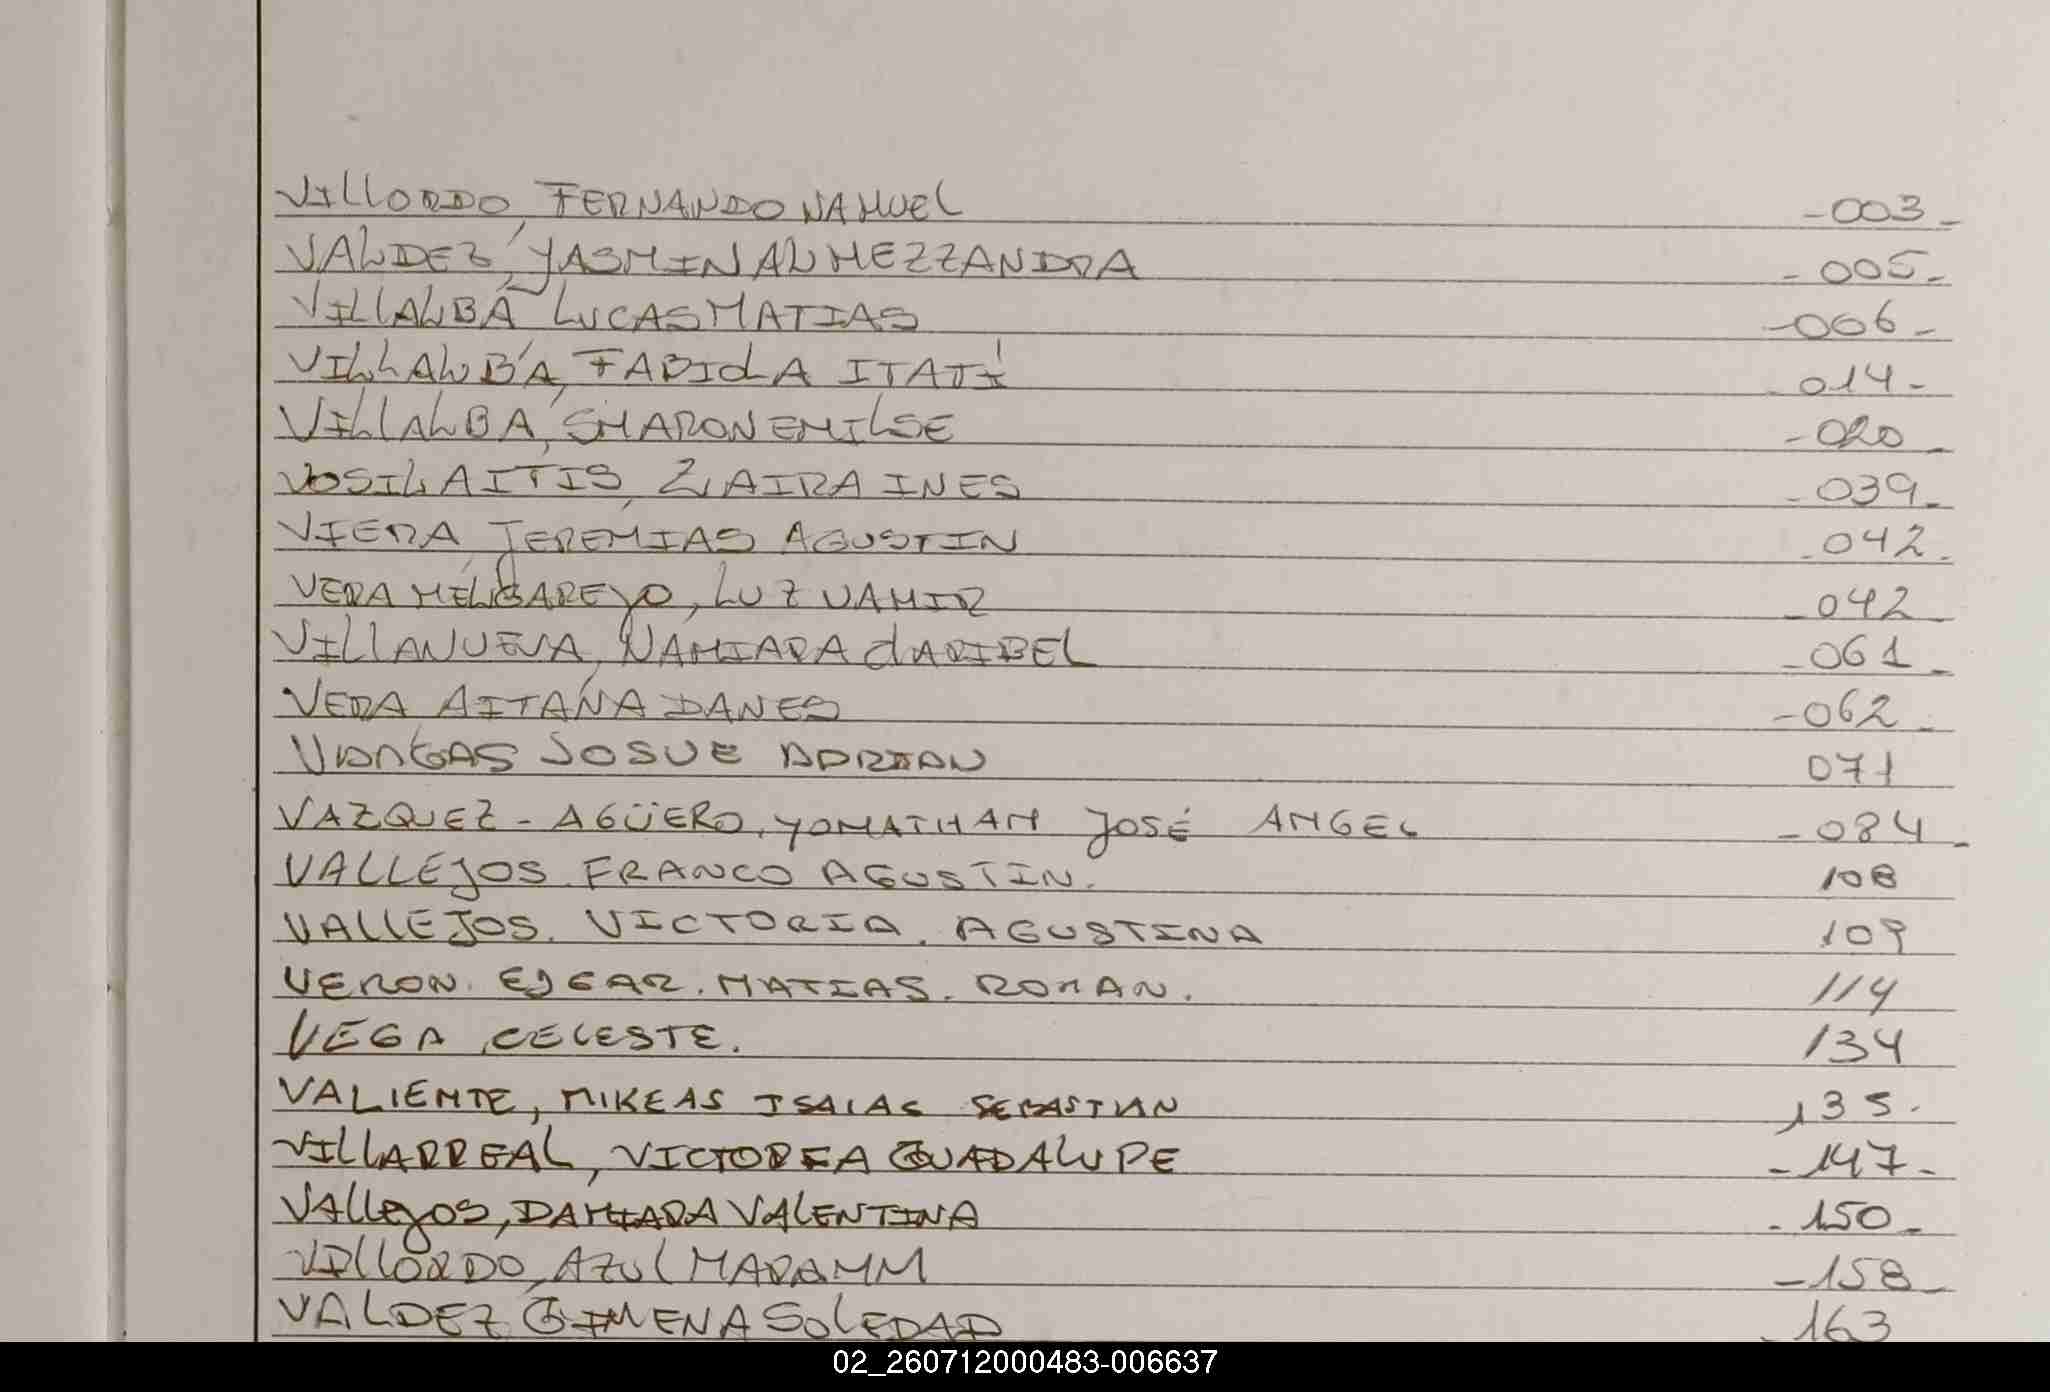 VILLORDO, FERNANDO NAHUEL -003-
VALDEZ, YASMIN ALHEZZANDRA -005-
VILLALBA LUCAS MATIAS -006-
VILLALBA, FABIOLA ITATÍ 014-
VILLALBA, SHARON EMILSE -020-
VOSILAITIS, ZAIRA INES -039-
VIERA, JEREMIAS AGUSTIN -042-
VERA MELGAREYO, LUZ NAHIR -042-
VILLANUEVA, NAHIARA CLARIBEL -061-
VERA AITANA DANES -062-
VARGAS JOSUE ADRIAN 071
VAZQUEZ - AGÜERO, YONATHAN JOSÉ ANGEL -084-
VALLEJOS. FRANCO AGUSTIN. 108
VALLEJOS. VICTORIA. AGUSTINA 109
VERON. EJGAR. MATIAS. ROMAN. 114
VEGA, CELESTE. 134
VALIENTE, MIKEAS ISAIAS SEBASTIAN 135.
VILLARREAL, VICTORIA GUADALUPE -147-
VALLEJOS, DAMIARA VALENTINA -150-
VILLORDO, AZUL -158-
VALDEZ GIMENA SOLEDAD -163
02_260712000483-006637